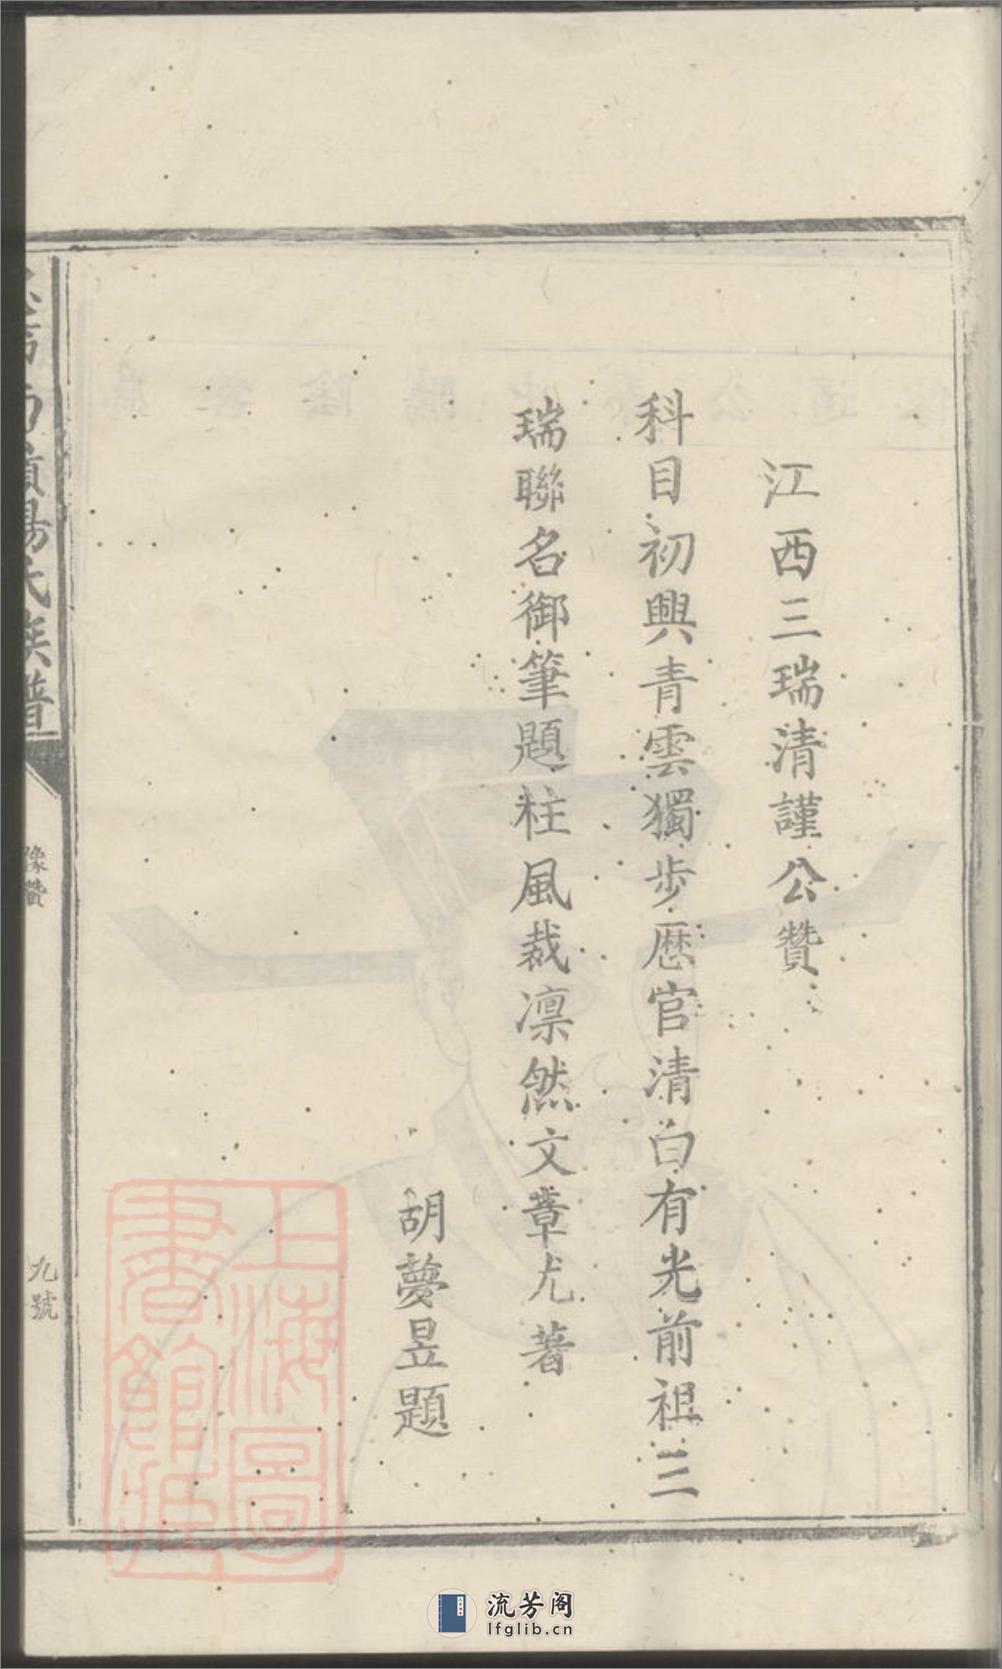 江西三瑞清謹公贊
科目初興青雲獨步歷官清白有光前祖三
瑞聯名御筆題柱風裁凛然文章尤著
胡夢昱題
氏族譜
像贊
九號
上海圖
書館藏
流芳阁
lfglib.cn